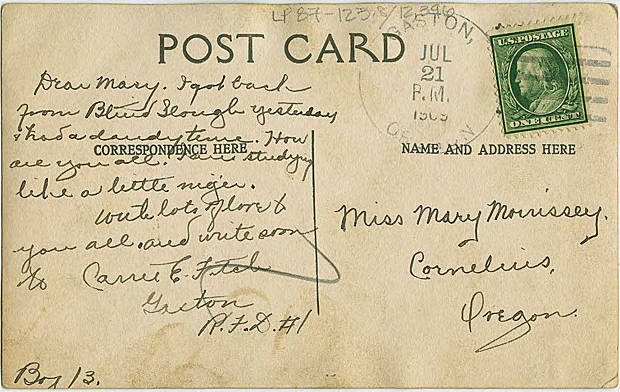 POST CARD
GASTON,
JUL
21
P.M.
1909
OREGON
U.S. POSTAGE
ONE CENT
Dear Mary. I got back
from Blind Slough yesterday
& had a dandy time. How
are you all. I am studying
CORRESPONDENCE HERE
like a little niger.
With lots of love to
you all. and write soon
to Carrie E. Fitch
Gaston
R.F.D. #1
Box 13.
NAME AND ADDRESS HERE
Miss Mary Morrissey.
Cornelius,
Oregon.